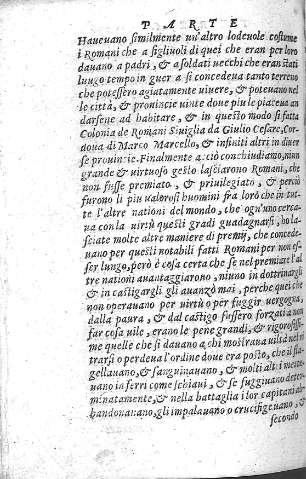 PARTE
Haueuano similmente un'altro lodeuole costume
i Romani che a figliuoli di quei che eran per loro
dauano a padri, & a soldati uecchi che eran stati
luugo tempo in guer a si concedeua tanto terreno
che potessero agiatamente uiuere, & poteuano nel
le città, & prouincie uinte doue piu le piaceua an
darsene ad habitare, & in questo modo fu fatta
Colonia de Romani Siuiglia da Giulio Cesare, Cor
doua di Marco Marcello, & infiniti altri in diuer
se prouincie. Finalmente acciò conchiudiamo, niun
grande & virtuoso gesto lasciarono Romani, che
non fusse premiato, & priuilegiato, & perciò
furono li piu ualorosi huomini fra loro che in tut-
te l'altre nationi del mondo, che ogn'uno cerca-
ua con la uirtù questi gradi guadagnarsi, ho la-
sciate molte altre maniere di premij, che concede-
uano per questi notabili fatti Romani per non es-
ser lungo, però è cosa certa che se nel premiare l'al
tre nationi auantaggiarono, niuno in dottrinargli
& in castigargli gli auanzò mai, perche quei che
non operauano per uirtù o per fuggir uergogna
dalla paura, & dal castigo fussero forzati a non
far cosa uile, erano le pene grandi, & rigorosissi
me quelle che si dauano a chi mostraua uiltà nel
trarsi o perdeua l'ordine doue era posto, che il fla-
gellauano, & sanguinauano, & molti altri mette-
uano in ferri come schiaui, & se fuggiuano deter-
minatamente, & nella battaglia i lor capitani ab-
bandonauano, gli impalauano o crucifigeuano, &
secondo